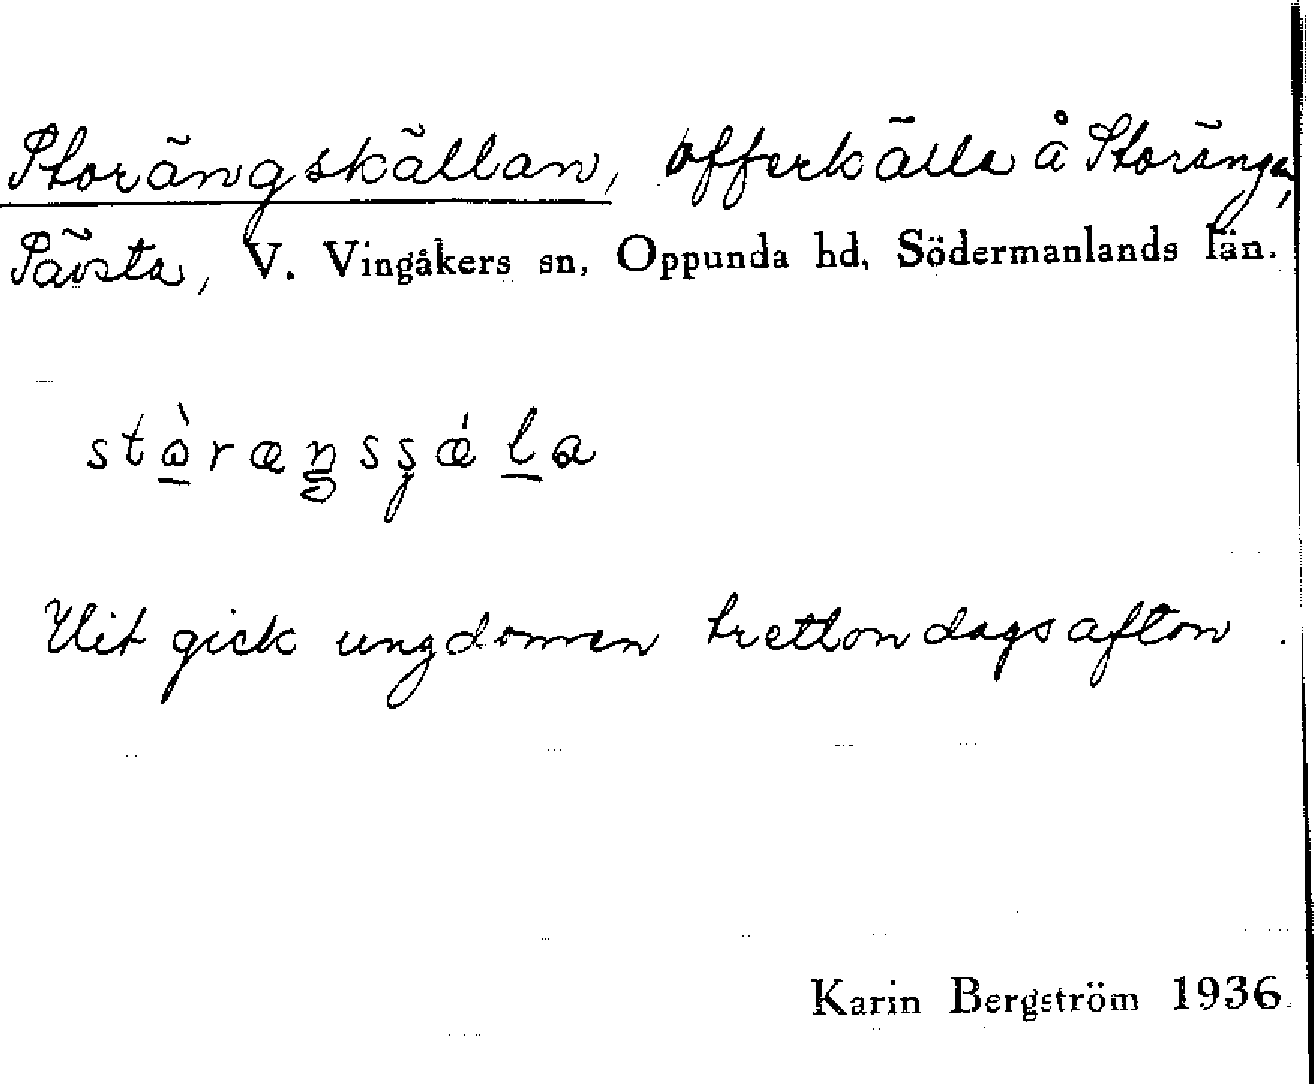 Storängskällan, offerkälla å Storängen,
Sävsta, V. Vingåkers sn, Oppunda hd, Södermanlands län.
Hit gick ungdomen trettondagsafton.
Karin Bergström 1936